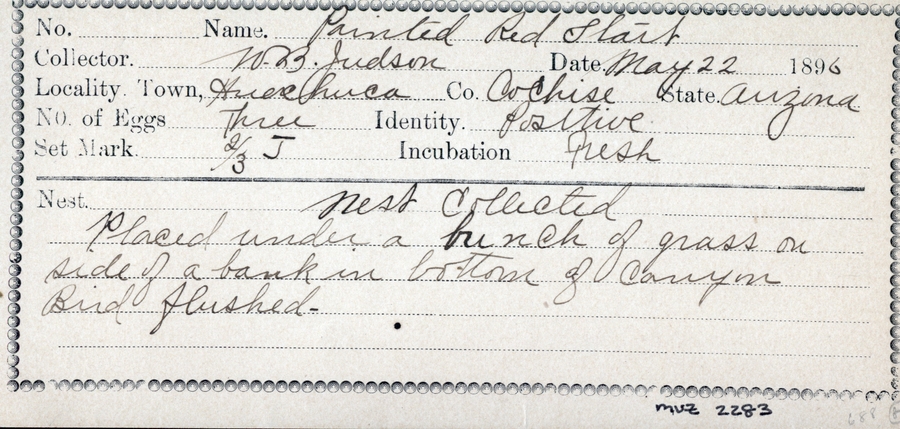 No. Name. Painted Red Start
Collector. W. B. Judson Date. May 22 1896
Locality. Town, Huachuca Co. Cochise State. Arizona
No. of Eggs Three Identity. Positive
Set Mark. 2/3 J Incubation Fresh
Nest. Nest Collected
Placed under a bunch of grass on
side of a bank in bottom of Canyon
Bird flushed-
MVZ 2283